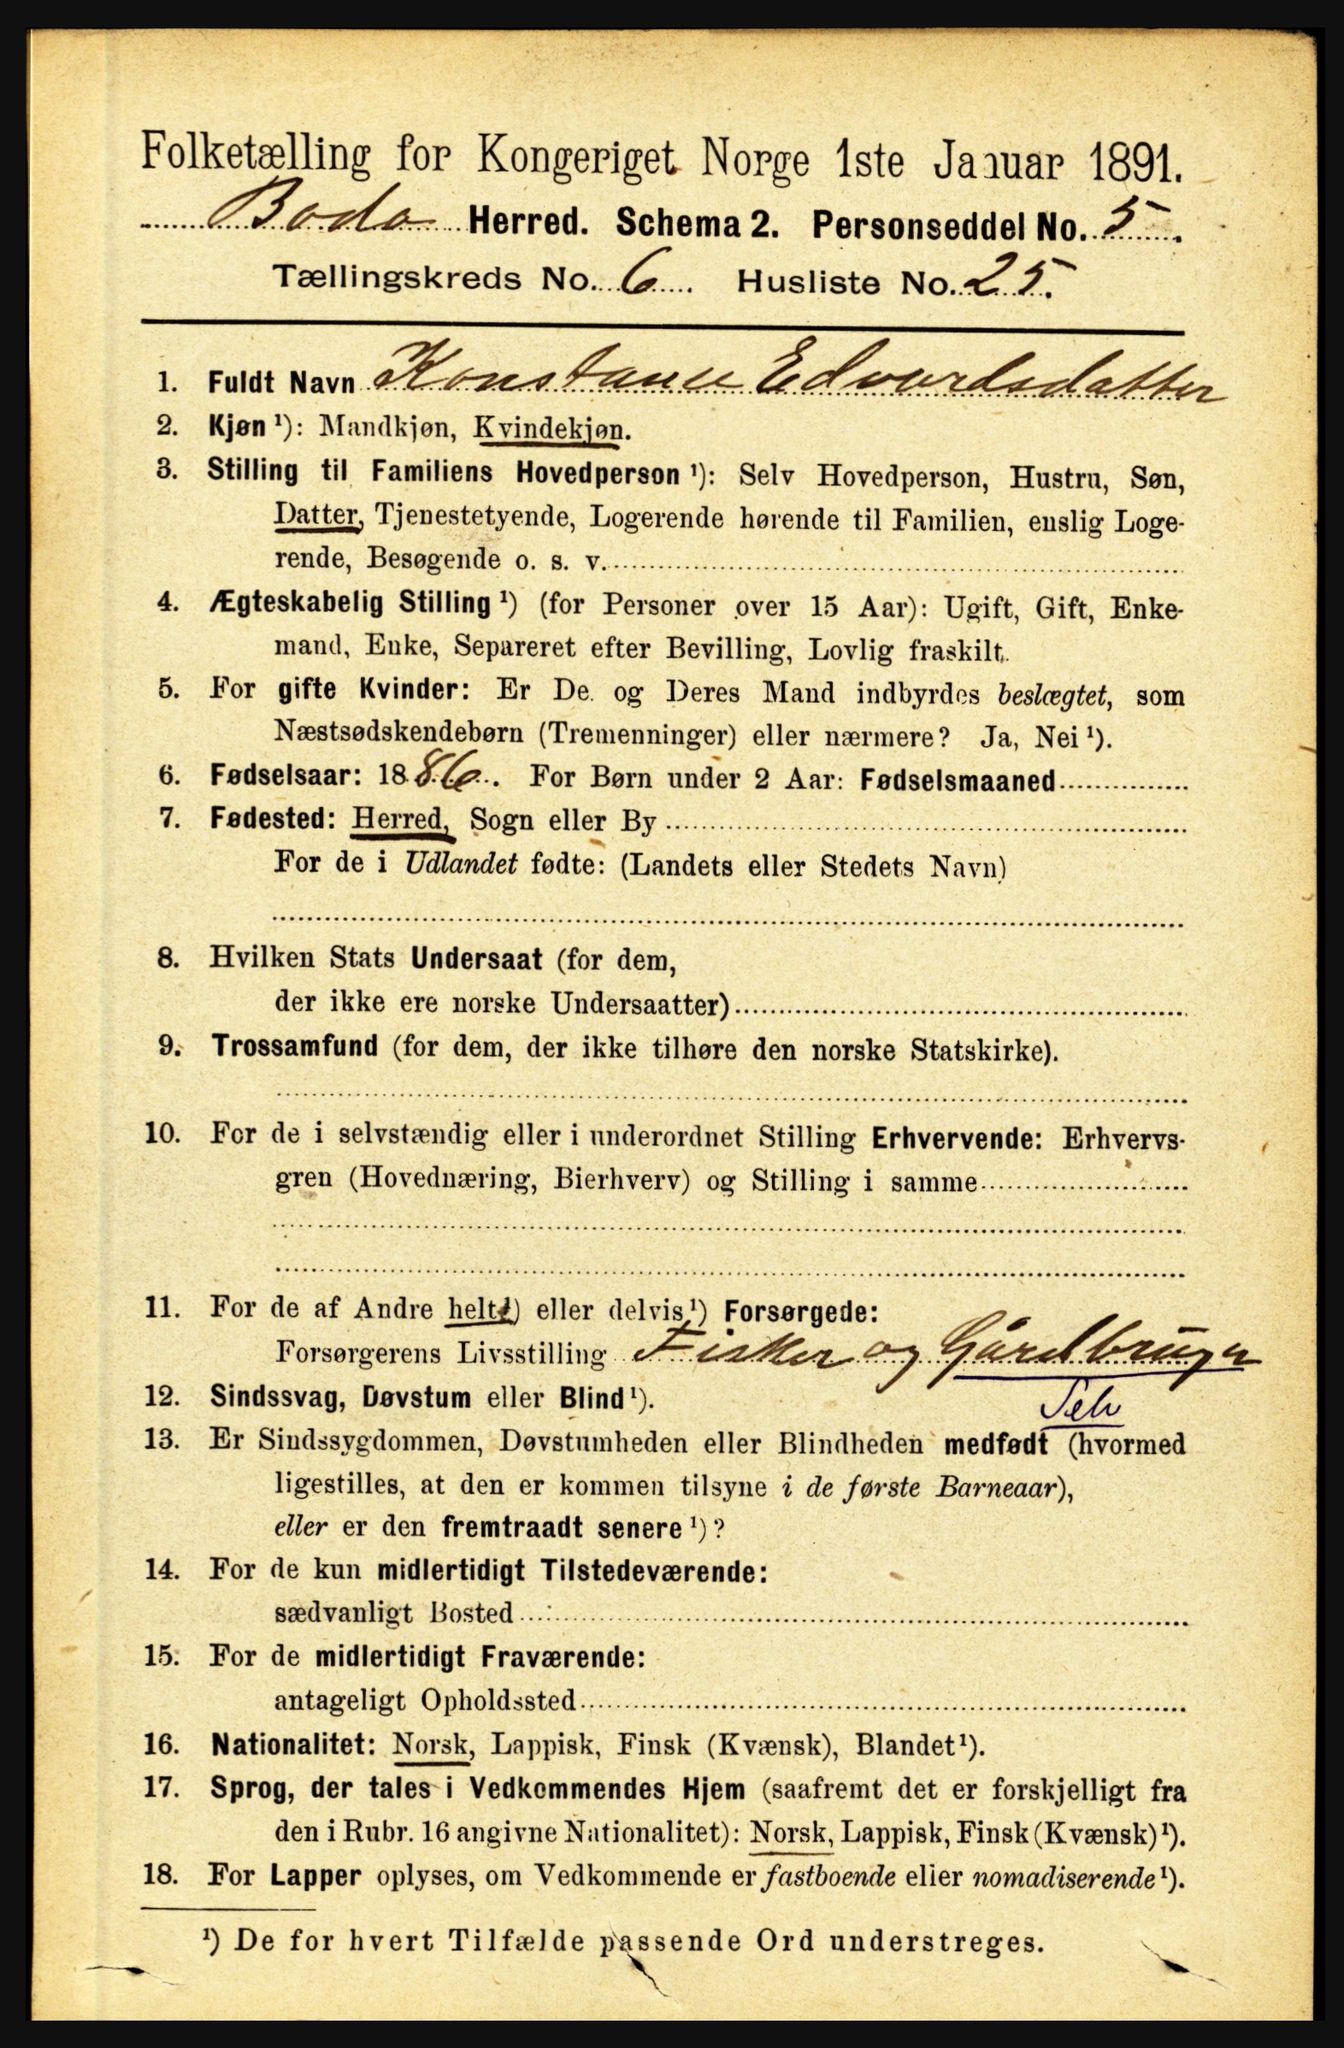 Folketælling for Kongeriget Norge 1ste Januar 1891.
Bodø Herred. Schema 2. Personseddel No. 5.
Tællingskreds No. 6. Husliste No. 25.
1. Fuldt Navn Konstance Edvardsdatter
2. Kjøn ¹): Mandkjøn, Kvindekjøn.
3. Stilling til Familiens Hovedperson ¹): Selv Hovedperson, Hustru, Søn,
Datter, Tjenestetyende, Logerende hørende til Familien, enslig Loge-
rende, Besøgende o. s. v.
4. Ægteskabelig Stilling ¹) (for Personer over 15 Aar): Ugift, Gift, Enke-
mand, Enke, Separeret efter Bevilling, Lovlig fraskilt.
5. For gifte Kvinder: Er De og Deres Mand indbyrdes beslægtet, som
Næstsødskendebørn (Tremenninger) eller nærmere? Ja, Nei ¹).
6. Fødselsaar: 1886. For Børn under 2 Aar: Fødselsmaaned
7. Fødested: Herred, Sogn eller By
For de i Udlandet fødte: (Landets eller Stedets Navn)
8. Hvilken Stats Undersaat (for dem,
der ikke ere norske Undersaatter)
9. Trossamfund (for dem, der ikke tilhøre den norske Statskirke).
10. For de i selvstændig eller i underordnet Stilling Erhvervende: Erhvervs-
gren (Hovednæring, Bierhverv) og Stilling i samme
11. For de af Andre helt ¹) eller delvis ¹) Forsørgede:
Forsørgerens Livsstilling Fisker og Gårdbruger
12. Sindssvag, Døvstum eller Blind ¹).
Selv
13. Er Sindssygdommen, Døvstumheden eller Blindheden medfødt (hvormed
ligestilles, at den er kommen tilsyne i de første Barneaar),
eller er den fremtraadt senere ¹)?
14. For de kun midlertidigt Tilstedeværende:
sædvanligt Bosted
15. For de midlertidigt Fraværende:
antageligt Opholdssted
16. Nationalitet: Norsk, Lappisk, Finsk (Kvænsk), Blandet ¹).
17. Sprog, der tales i Vedkommendes Hjem (saafremt det er forskjelligt fra
den i Rubr. 16 angivne Nationalitet): Norsk, Lappisk, Finsk (Kvænsk) ¹).
18. For Lapper oplyses, om Vedkommende er fastboende eller nomadiserende ¹).
¹) De for hvert Tilfælde passende Ord understreges.